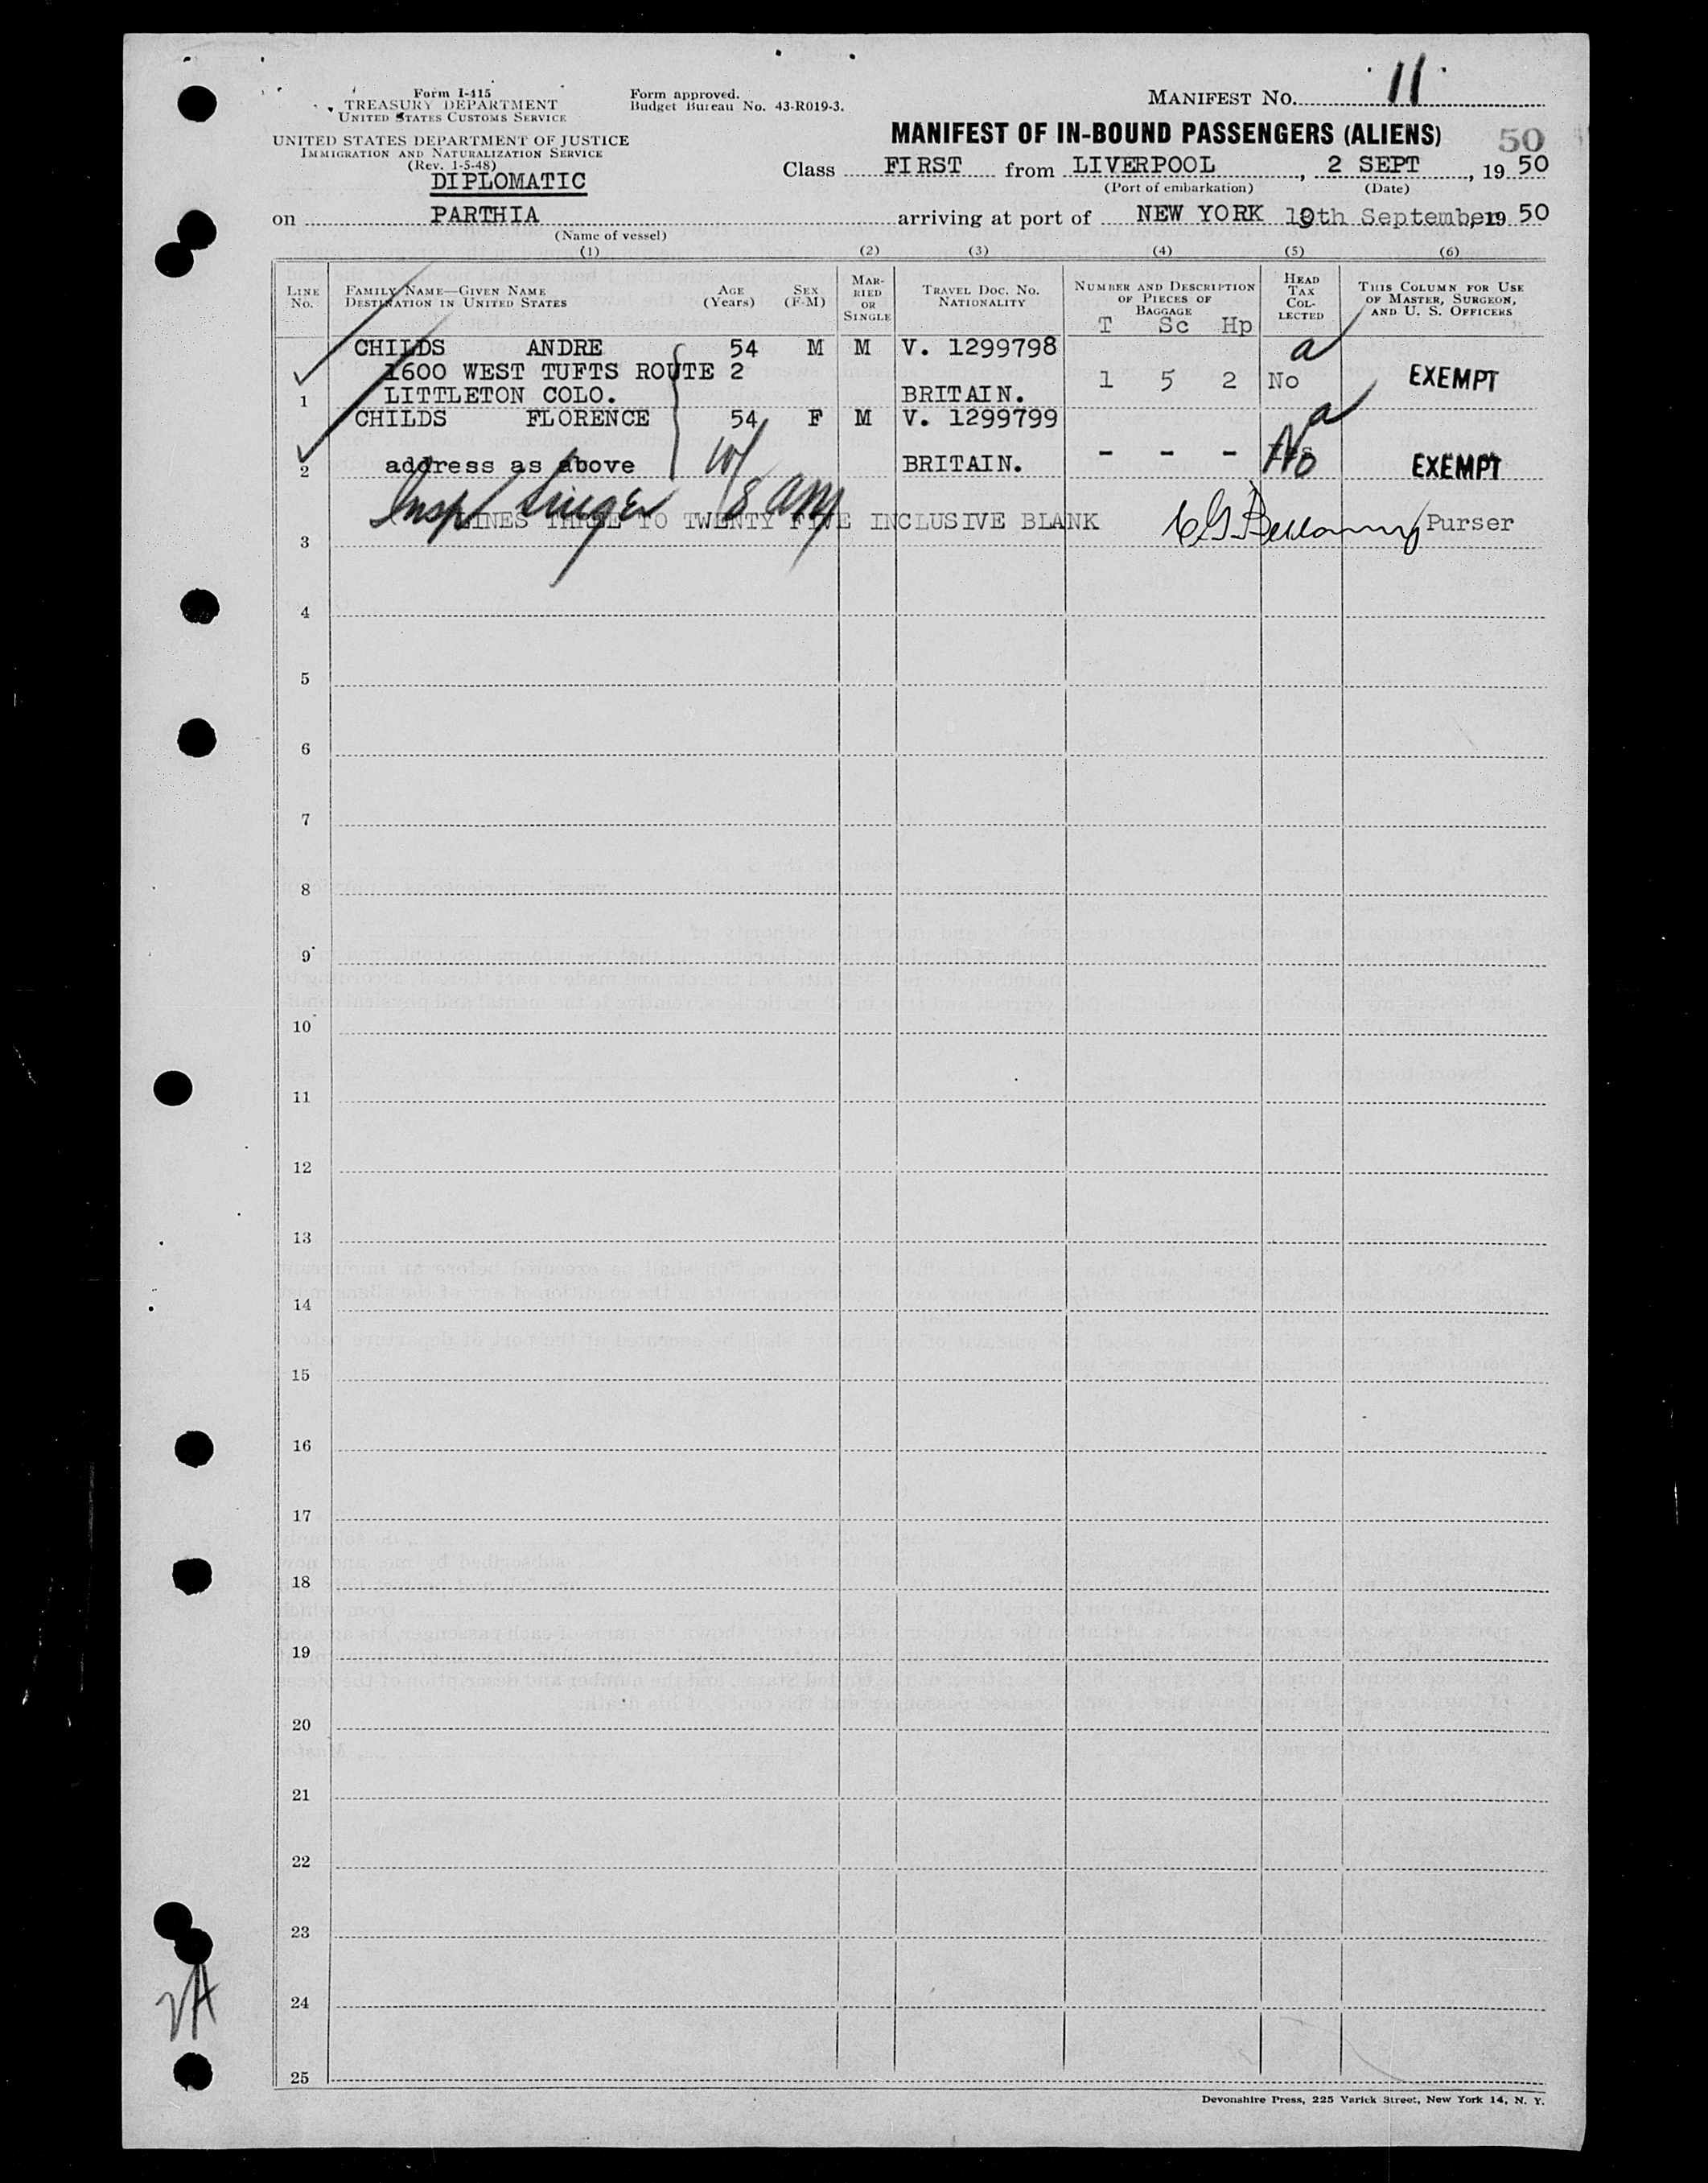 Form I-415
TREASURY DEPARTMENT
UNITED STATES CUSTOMS SERVICE
UNITED STATES DEPARTMENT OF JUSTICE
IMMIGRATION AND NATURALIZATION SERVICE
(Rev. 1-5-48)
Form approved.
Budget Bureau No. 43-R019-3.
MANIFEST NO. 11
MANIFEST OF IN-BOUND PASSENGERS (ALIENS) 50
Class FIRST from LIVERPOOL, 2 SEPT, 19 50
(Port of embarkation) (Date)
DIPLOMATIC
on PARTHIA arriving at port of NEW YORK 10th September, 19 50
(Name of vessel)
(1) (2) (3) (4) (5) (6)
LINE NO. FAMILY NAME—GIVEN NAME DESTINATION IN UNITED STATES AGE (Years) SEX (F-M) MARRIED OR SINGLE TRAVEL DOC. NO. NATIONALITY NUMBER AND DESCRIPTION OF PIECES OF BAGGAGE HEAD TAX COLLECTED THIS COLUMN FOR USE OF MASTER, SURGEON, AND U. S. OFFICERS
T Sc Hp
CHILDS ANDRE 54 M M V. 1299798 a
1600 WEST TUFTS ROUTE 2 1 5 2 No EXEMPT
1 LITTLETON COLO. BRITAIN.
CHILDS FLORENCE 54 F M V. 1299799 a
2 address as above BRITAIN. - - - No EXEMPT
Insp Singer
LINES THREE TO TWENTY FIVE INCLUSIVE BLANK Purser
3
4
5
6
7
8
9
10
11
12
13
14
15
16
17
18
19
20
21
22
23
24
25
Devonshire Press, 225 Varick Street, New York 14, N. Y.